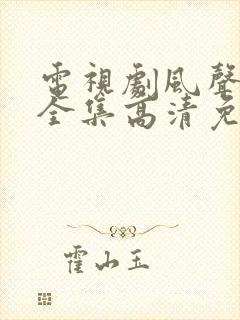 電視劇風聲
全集高清免
霍山玉